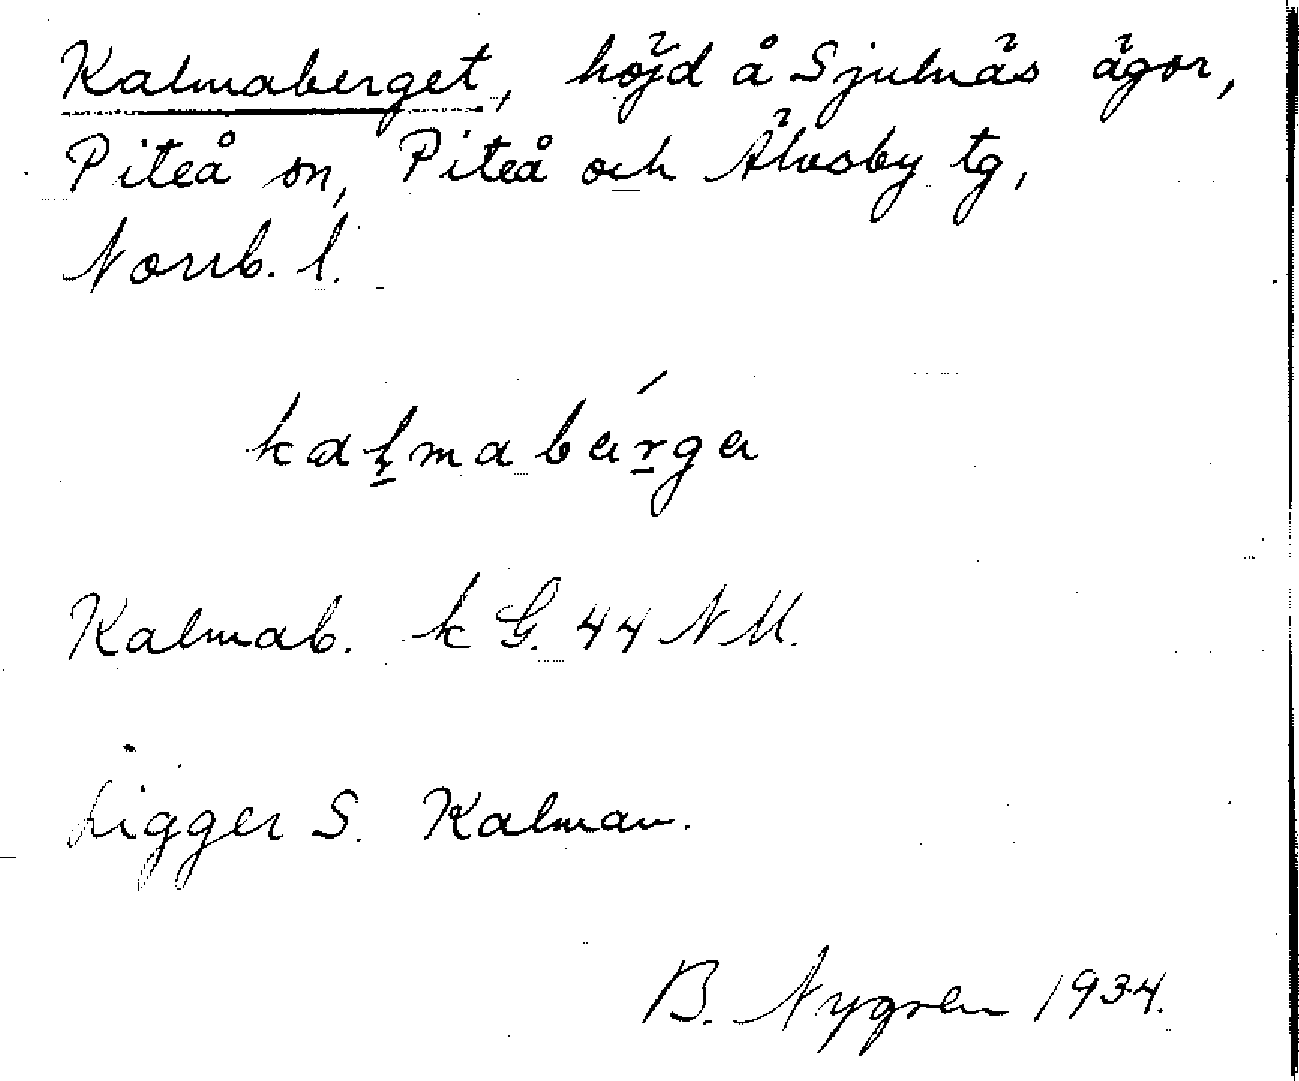 Kalmaberget, höjd å Sjulnäs ägor,
Piteå sn, Piteå och Älvsby tg,
Norrb. l.
kaļmabärga
Kalmab. k G. 44 NM.
Ligger S. Kalman.
B. Nygren 1934.